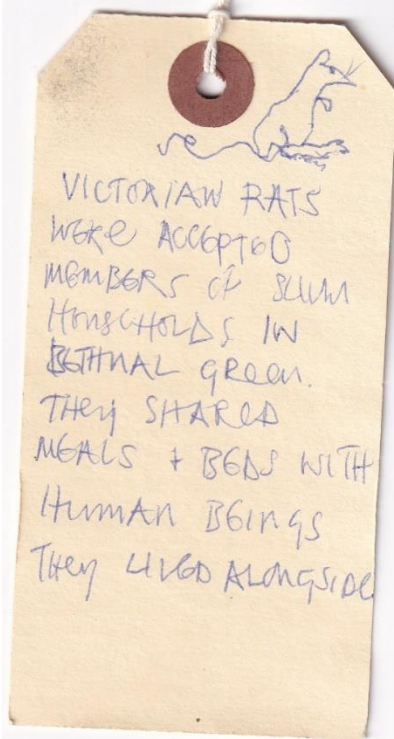 VICTORIAN RATS
WERE ACCEPTED
MEMBERS OF SLUM
HOUSEHOLDS IN
BETHNAL GREEN.
THEY SHARED
MEALS + BEDS WITH
HUMAN BEINGS
THEY LIVED ALONGSIDE